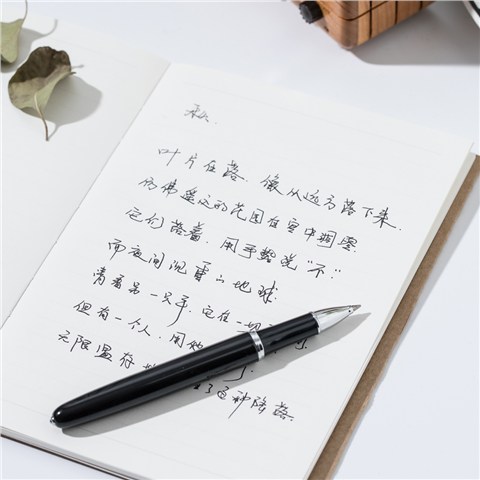 秋.
叶片在落, 像从远方落下来.
仿佛遥远的花园在空中凋零.
它们落着, 用手势说"不".
而夜间沉重 地球.
看看另一只手, 它在一切
但有一个人, 用他
无限温存 了这种降落.